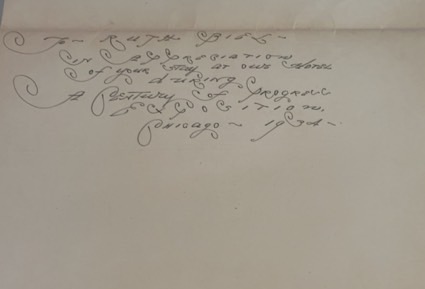 To - Ruth Biel -
in appreciation
of your stay at our Hotel
during
A Century of Progress
Exposition.
Chicago - 1934 -